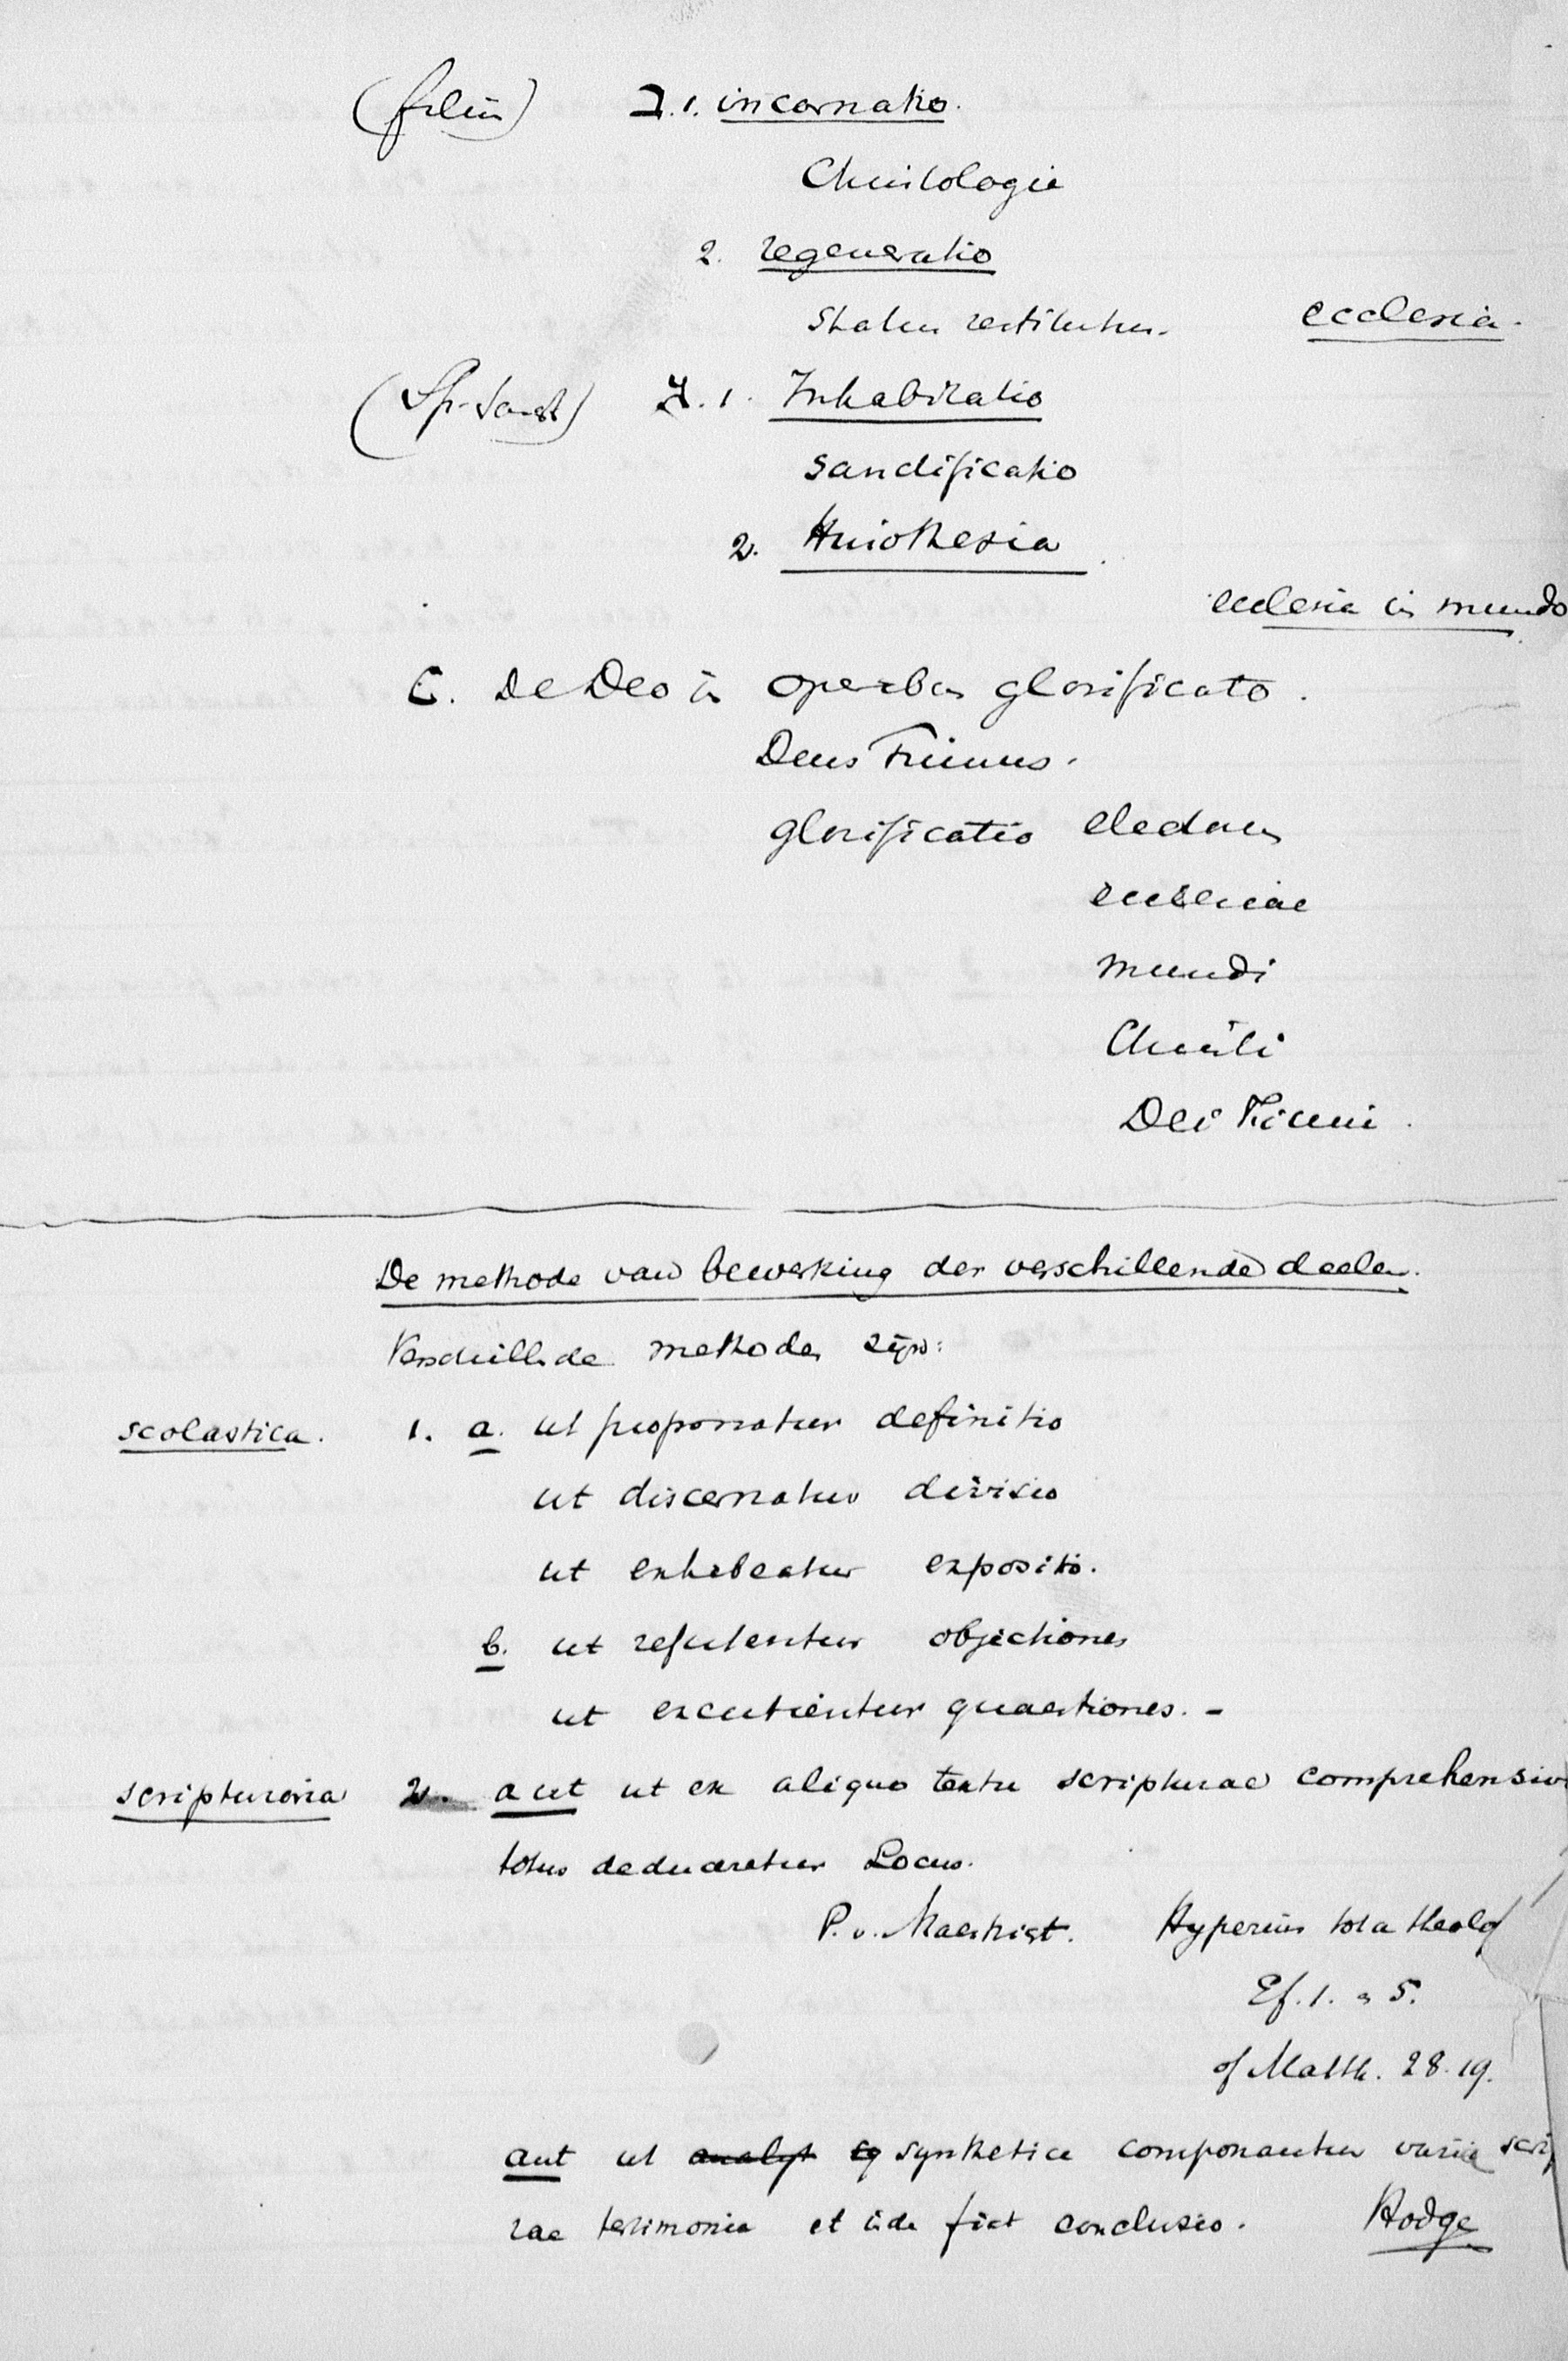 (filius) ב. 1. incarnatio.
Christologie
2. regeneratio
Status restitutus. ecclesia.
(Sp. Sanct) ג. 1. Inhabitatio
sanctificatio
2. Huiothesia.
ecclesia in mundo
C. De Deo in operibus glorificato.
Deus Triunus.
glorificatio electorum
ecclesiae
mundi
Christi
Dei Triuni.
De methode van bewerking der verschillende deelen.
Verschillende methoden zijn:
scolastica. 1. a. ut proponatur definitio
ut discernatur divisio
ut exhibeatur expositio.
b. ut refutentur objectiones
ut excutientur quaestiones. -
scripturaria 2. aut ut ex aliquo textu scripturae comprehensivo
totus deduceretur Locus.
P. v. Maestrigt. Hyperius tota theolog
Ef. 1. a 5.
of Matth. 28.19.
aut ut analyt synthetice componantur varia scrip
rae testimonia et inde fiat conclusio. Hodge